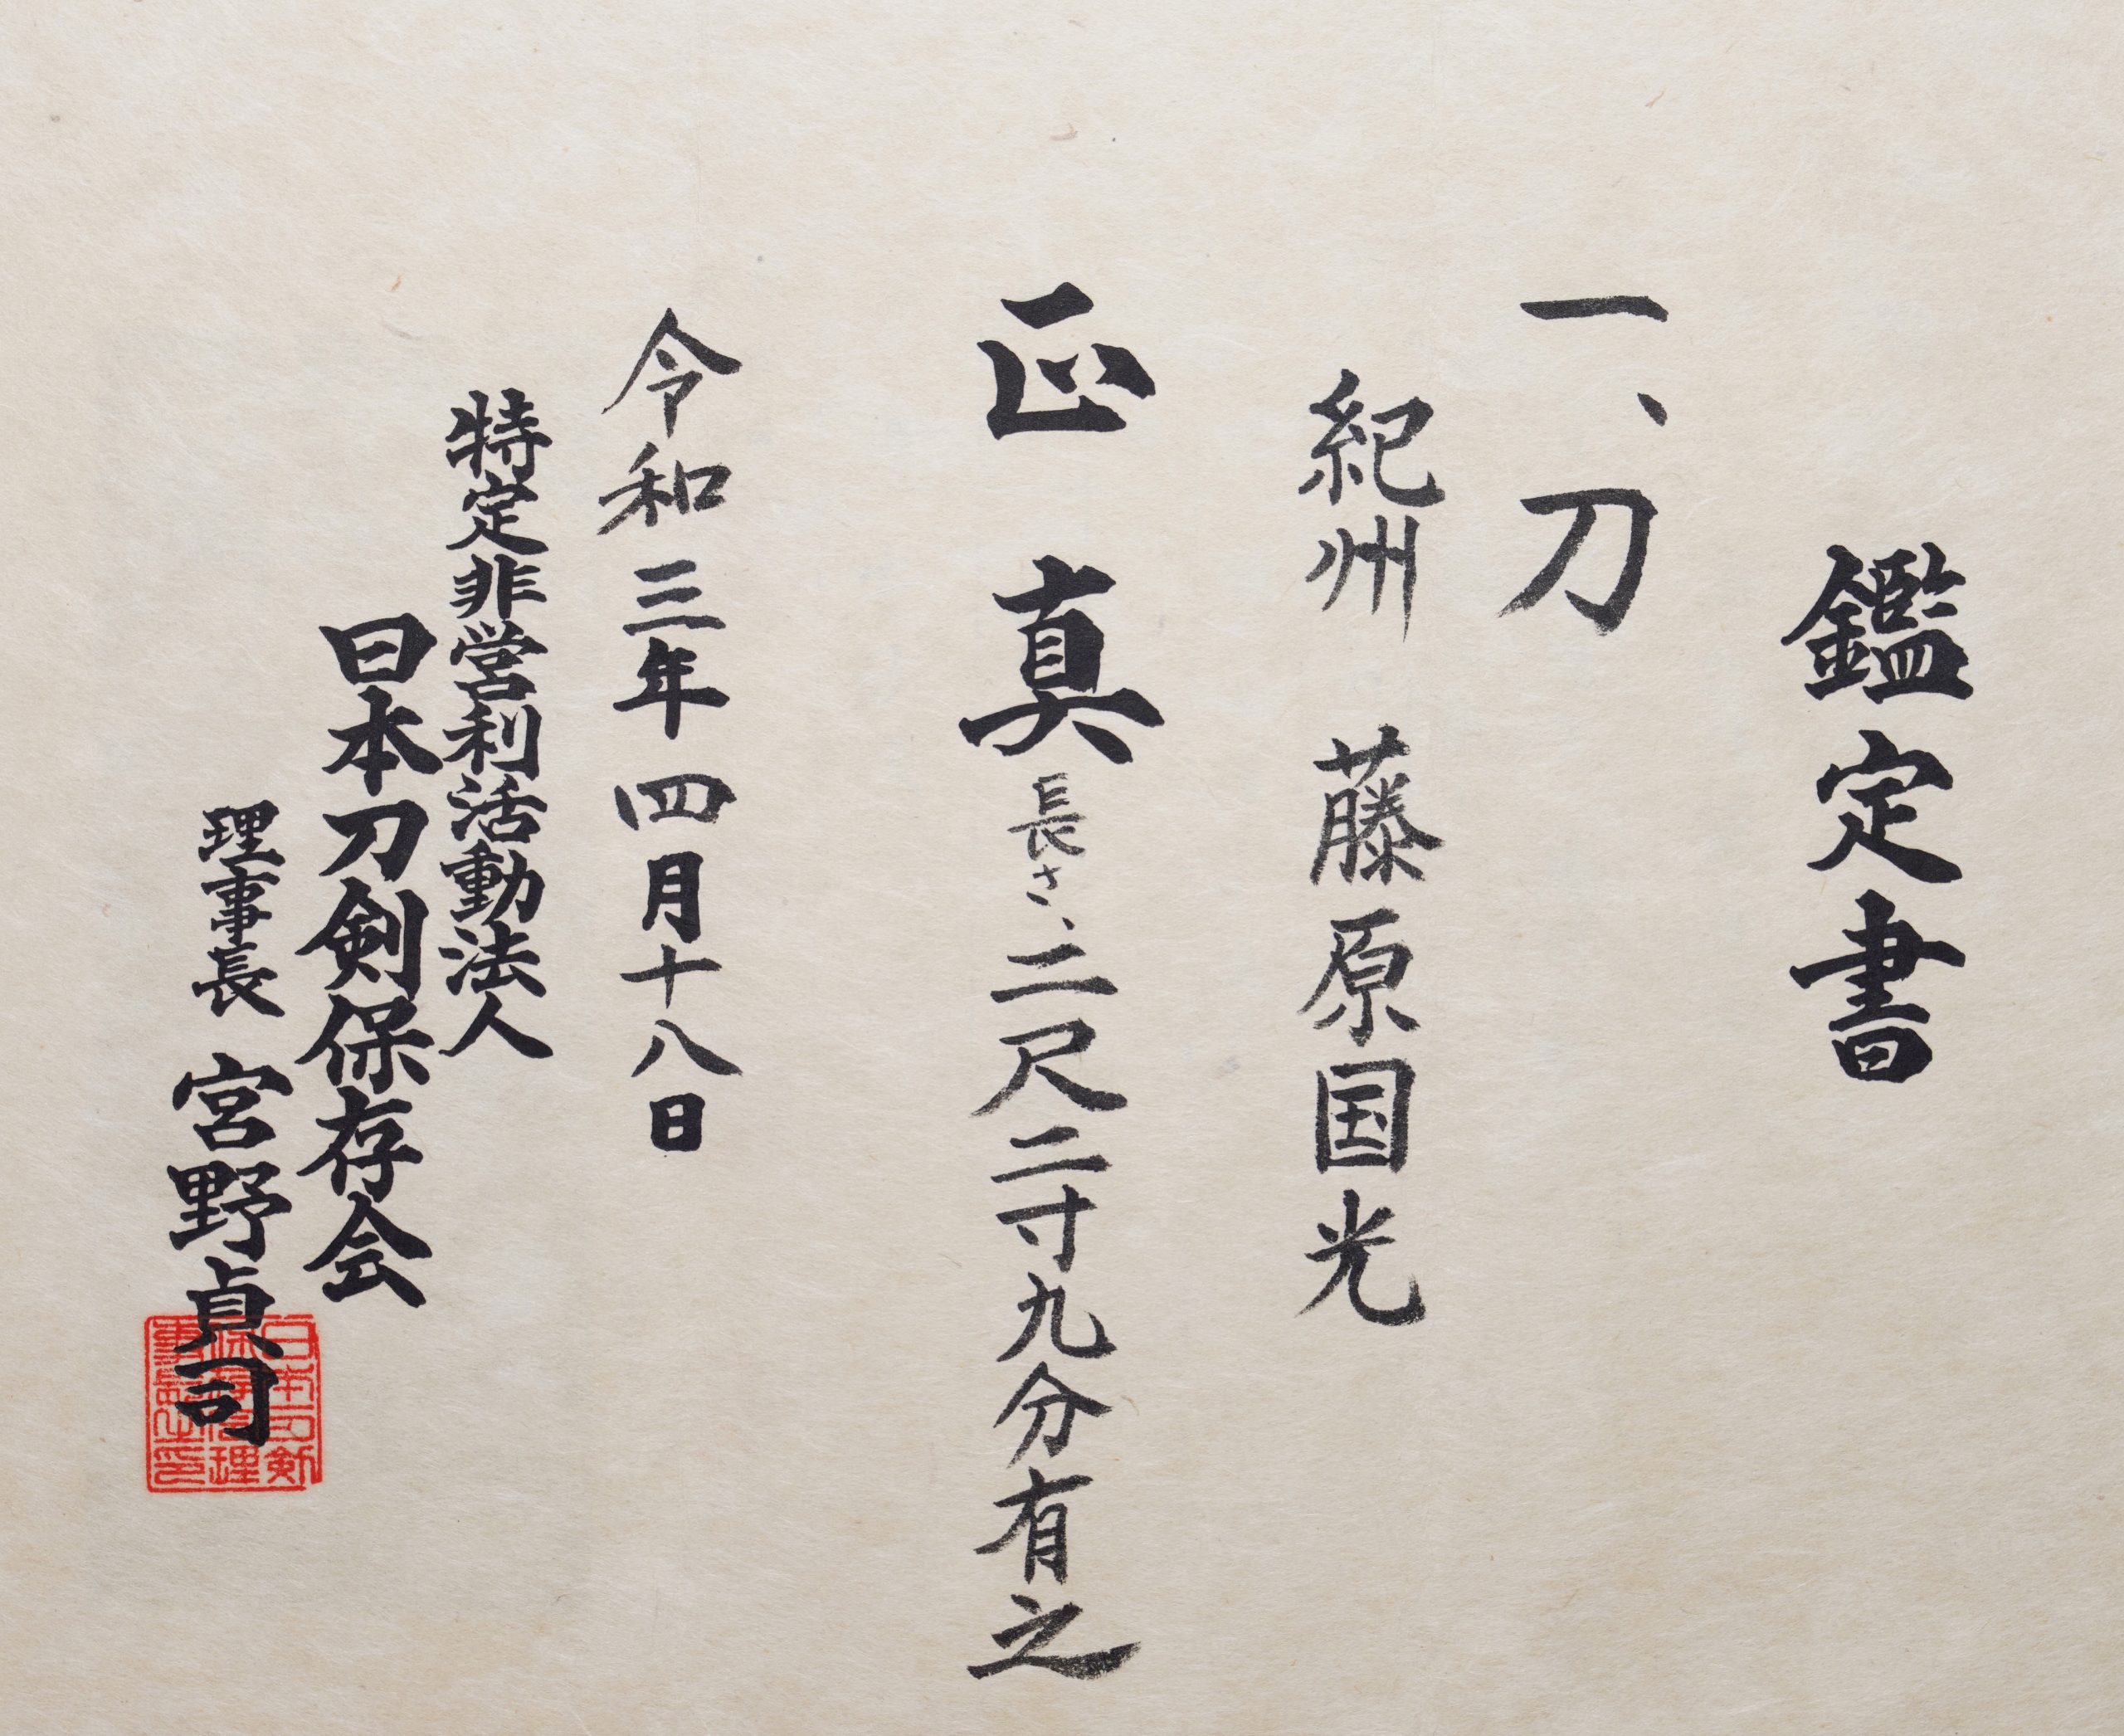 鑑定書
一、刀
紀州 藤原国光
正真 長さ、二尺二寸九分有之
令和三年四月十八日
特定非営利活動法人
日本刀剣保存会
理事長 宮野貞司